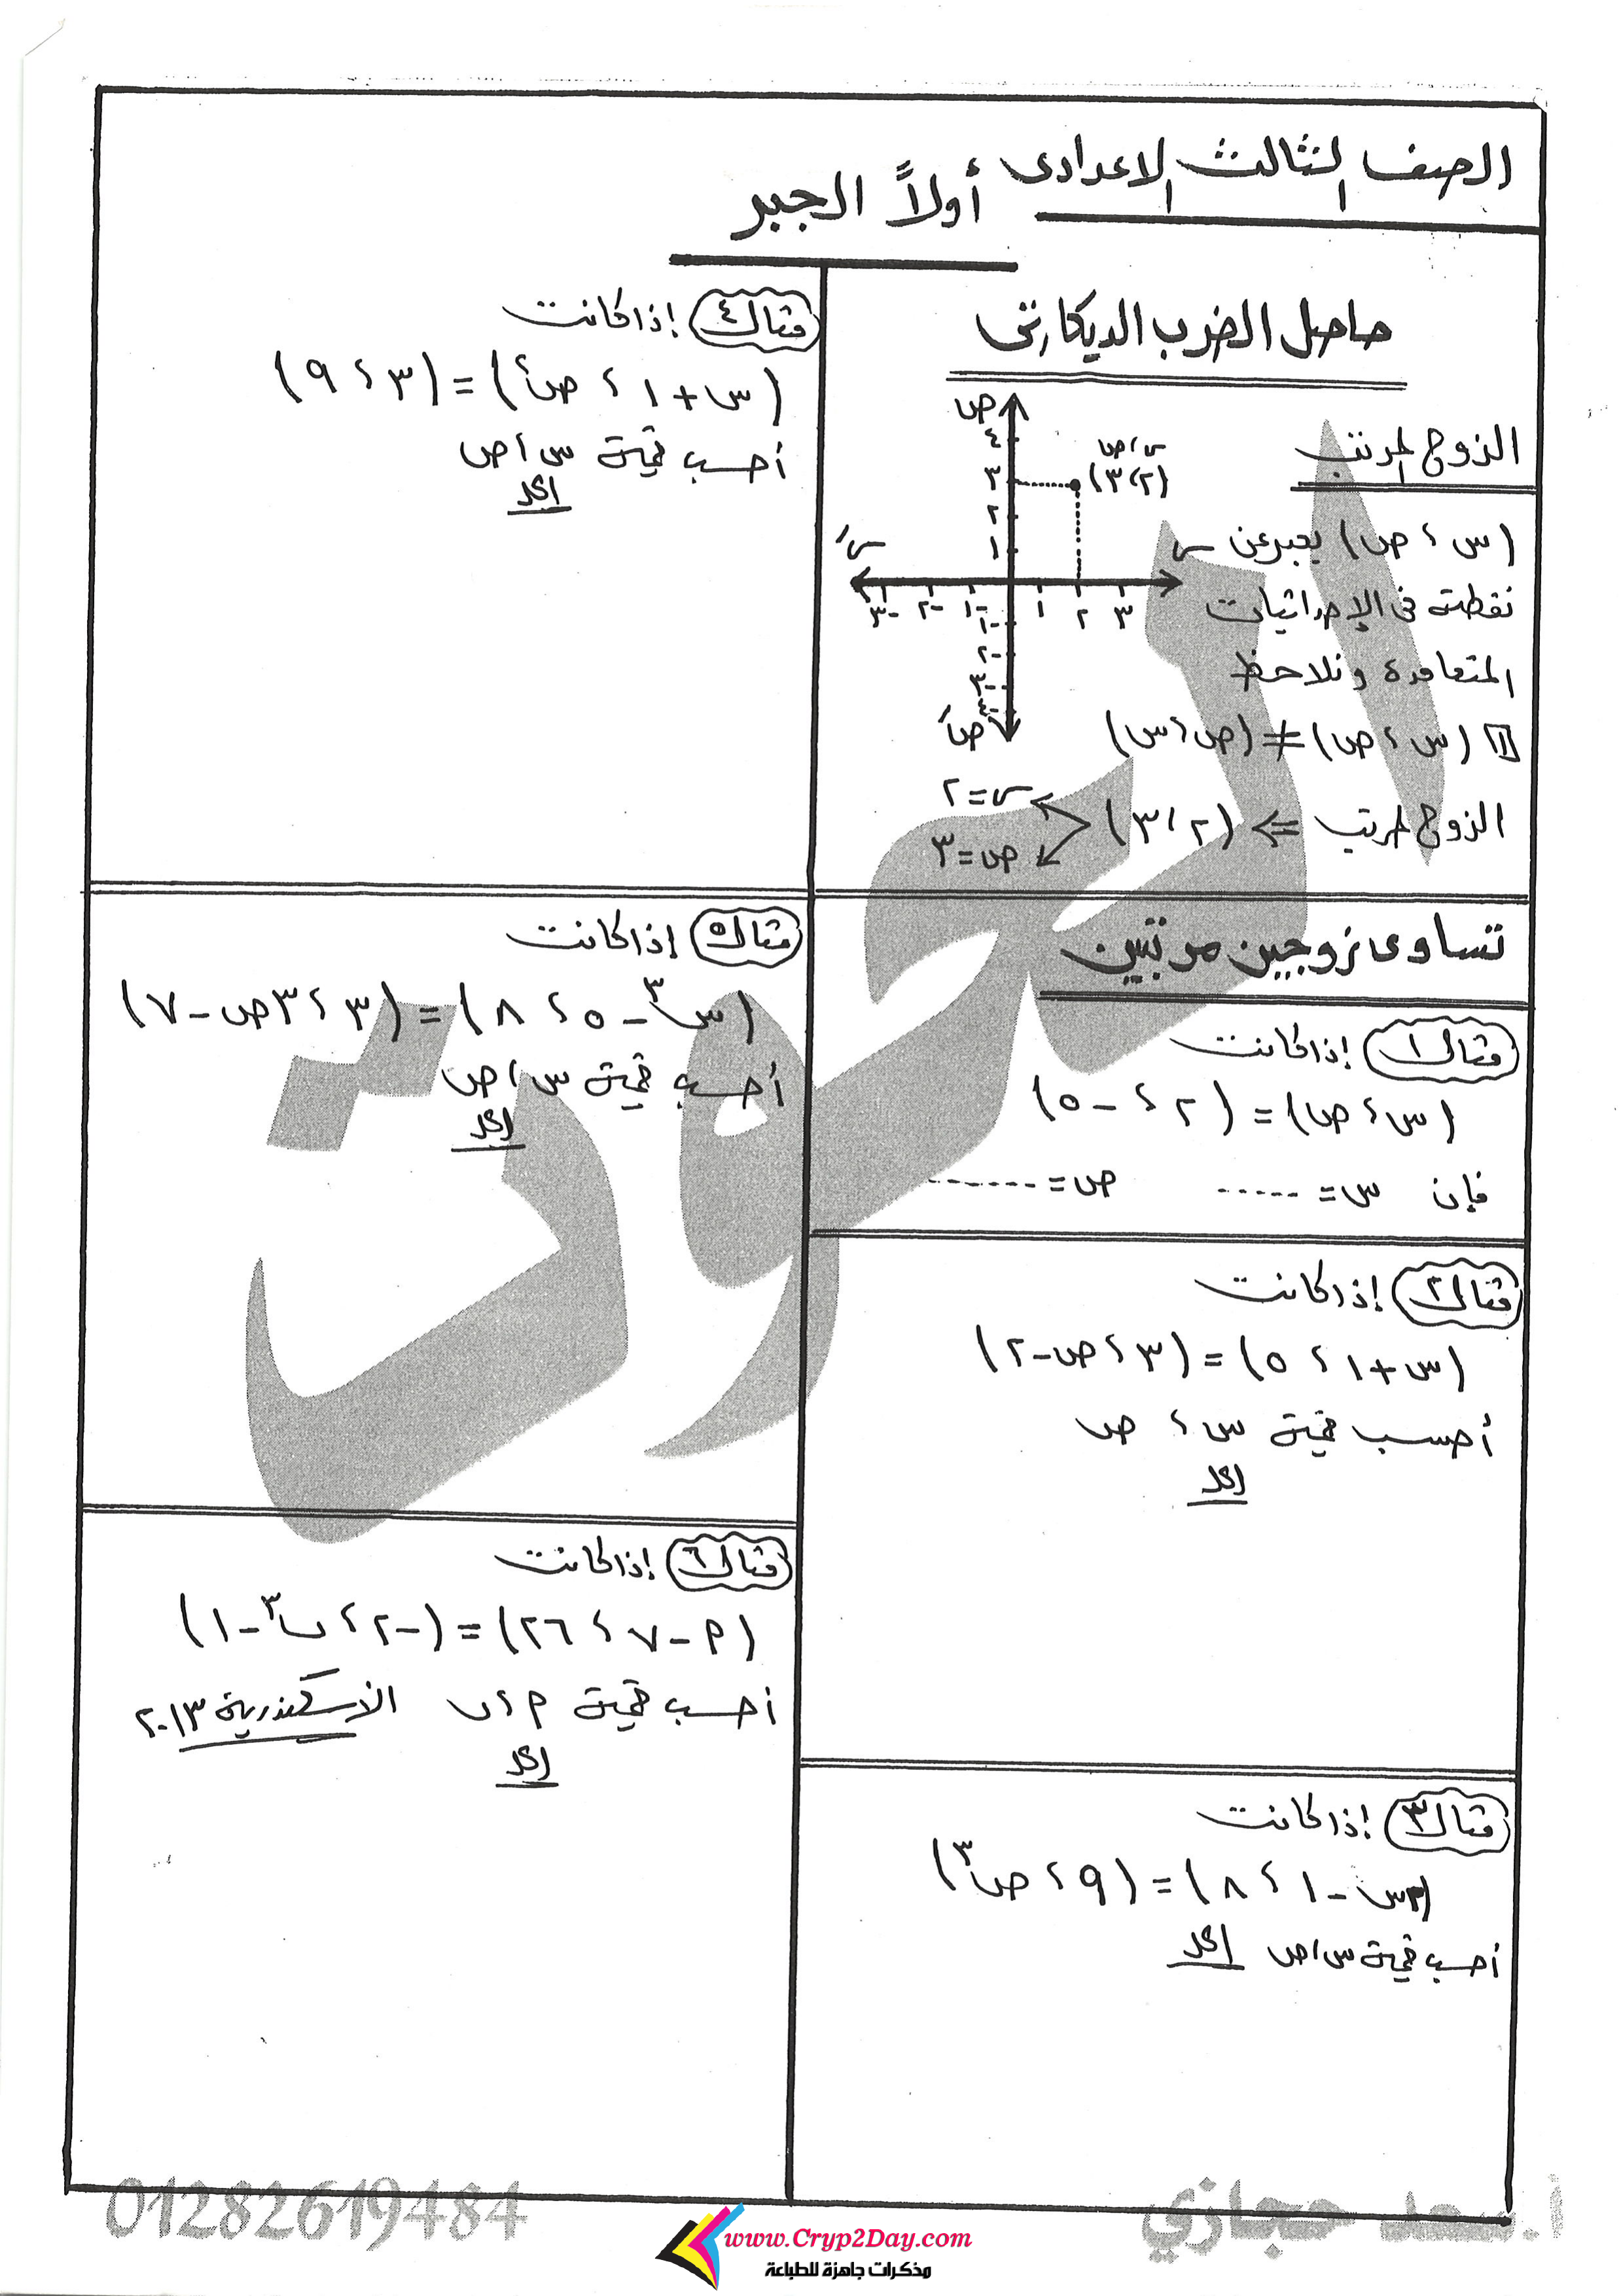 الصف الثالث الاعدادى
أولاً الجبر
حاصل الضرب الديكارتى
الزوج المرتب
(س ، ص) يعبر عن
نقطة فى الإحداثيات
المتعامدة ونلاحظ
١ (س ، ص) ≠ (ص ، س)
الزوج المرتب ⇐ (٢ ، ٣)
س = ٢
ص = ٣
ص
٤
٣
٢
١
س، ص
(٢، ٣)
س
سَ
-٣ -٢ -١ ١ ٢ ٣
-١
-٢
-٣
صَ
تساوى زوجين مرتبين
مثال ١ إذا كانت
(س ، ص) = (٢ ، -٥)
فإن س = ...... ص = ........
مثال ٢ إذا كانت
(س + ١ ، ٥) = (٣ ، ص - ٢)
أحسب قيمة س ، ص
الحل
مثال ٣ إذا كانت
(٢س - ١ ، ٨) = (٩ ، ص٣)
أحسب قيمة س، ص الحل
مثال ٤ إذا كانت
(س + ١ ، ص٢) = (٣ ، ٩)
أحسب قيمة س، ص
الحل
مثال ٥ إذا كانت
(س٣ - ٥ ، ٨) = (٣ ، ٣ص - ٧)
أحسب قيمة س، ص
الحل
مثال ٦ إذا كانت
(م - ٧ ، ٢٦) = (-٢ ، ب٣ - ١)
أحسب قيمة م ، ب الاسكندرية ٢٠١٣
الحل
العون
01282619484
أ.سعد حجازي
www.Cryp2Day.com
مذكرات جاهزة للطباعة